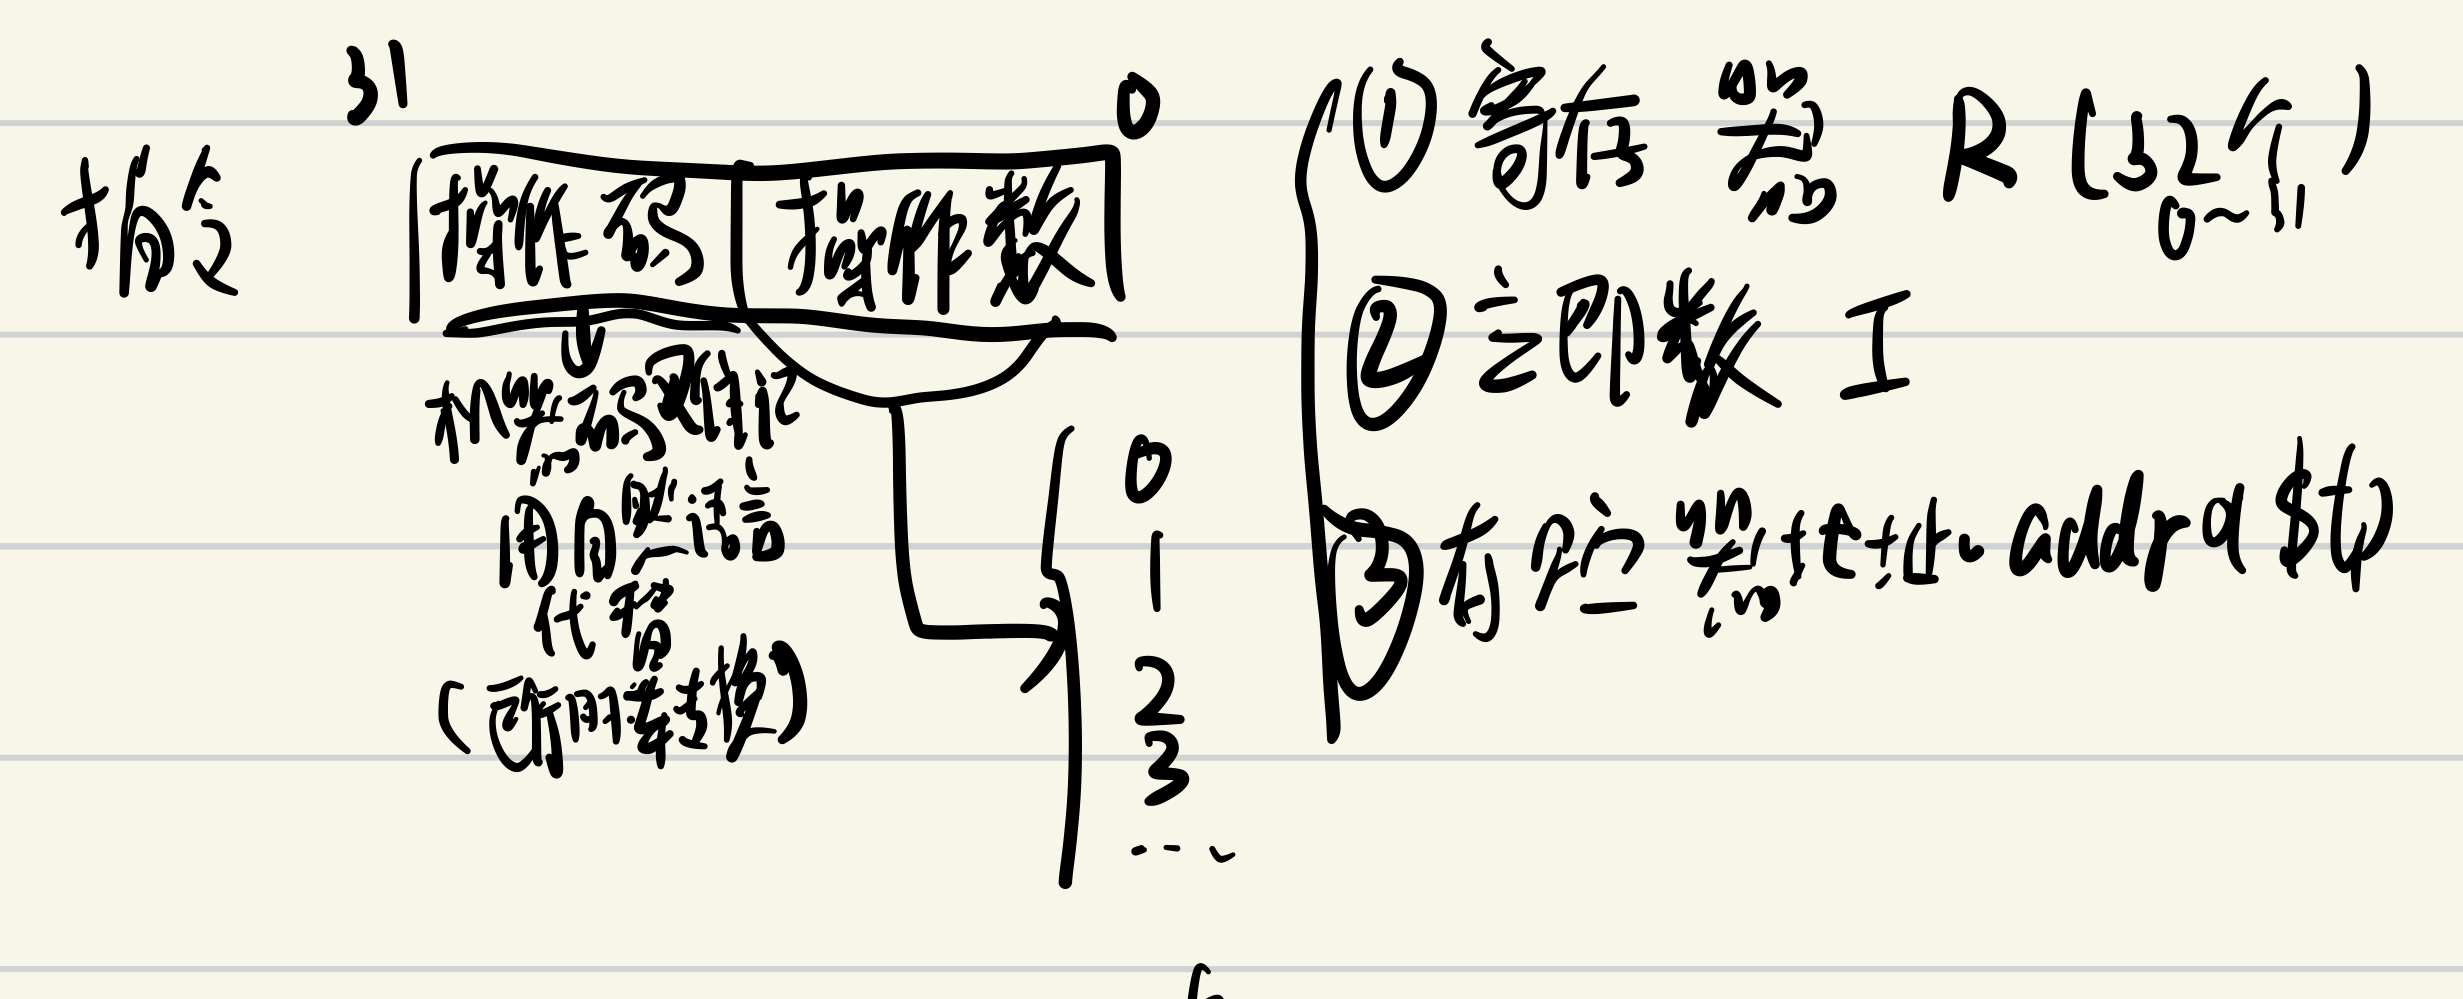 31 0
指令 操作码 操作数
机器码难记
用自然语言
代替
(可用来转换)
0
1
2
3
...
① 寄存器 R (32个)
0~
② 立即数 I
③ 存储器地址 addr